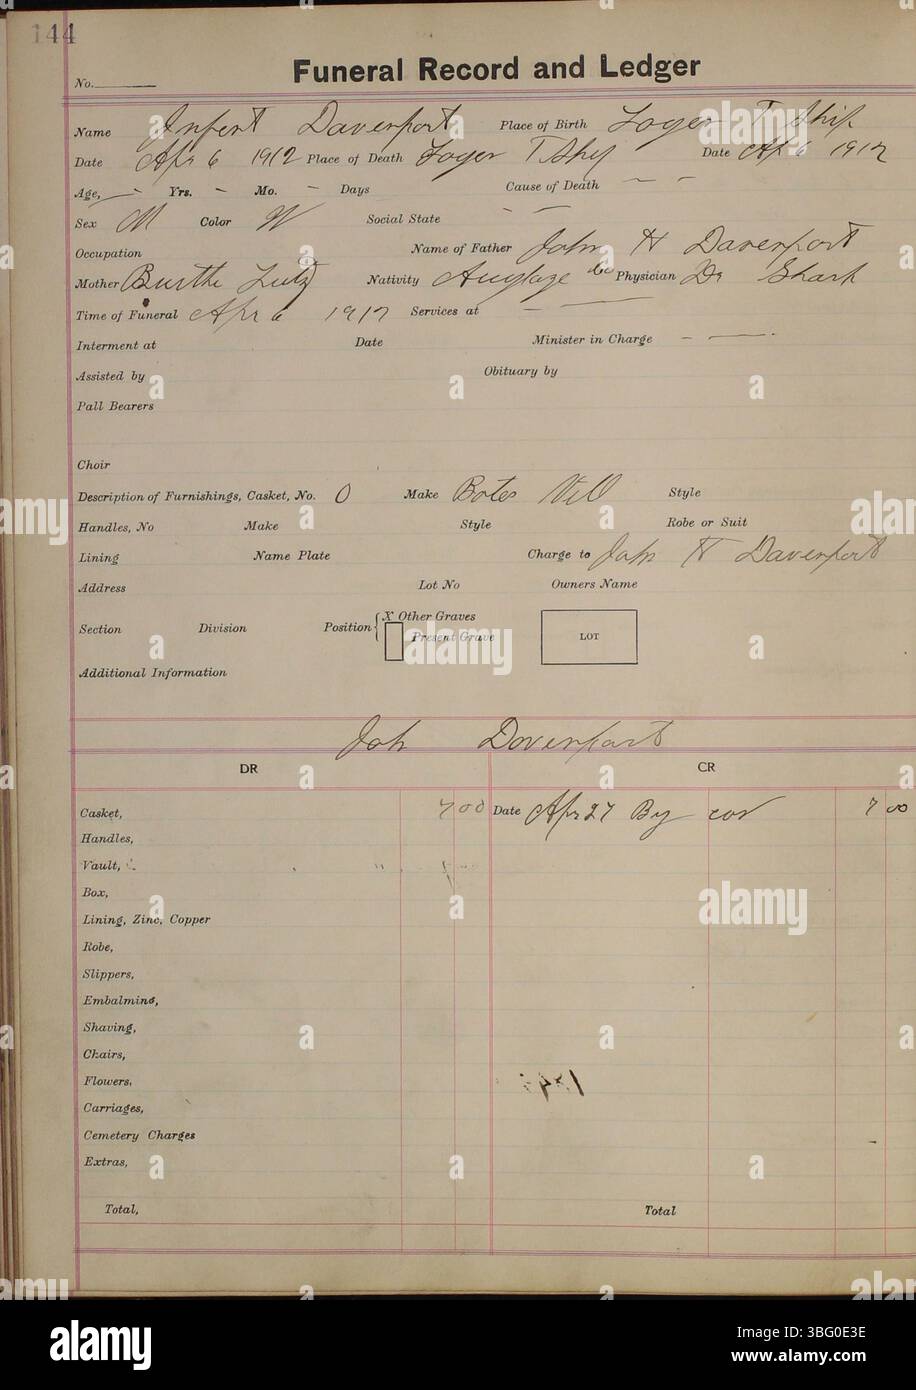 144
Funeral Record and Ledger
No.
Name Infert Davenport Place of Birth Loger T Ship
Date Apr 6 1912 Place of Death Loger T Ship Date Ap 6 1912
Age, - Yrs. - Mo. - Days Cause of Death - -
Sex M Color W Social State - -
Occupation Name of Father John H Davenport
Mother Burtha Lutz Nativity Auglaze Co Physician Dr Sharp
Time of Funeral Apr 6 1912 Services at - -
Interment at Date Minister in Charge - -
Assisted by Obituary by
Pall Bearers
Choir
Description of Furnishings, Casket, No. 0 Make Botes Vill Style
Handles, No Make Style Robe or Suit
Lining Name Plate Charge to John H Davenport
Address Lot No Owners Name
Section Division Position X Other Graves
Present Grave LOT
Additional Information
Joh Davenport
DR CR
Casket, 7 00 Date Apr 27 By 7 00
Handles,
Vault,
Box,
Lining, Zinc, Copper
Robe,
Slippers,
Embalming,
Shaving,
Chairs,
Flowers,
Carriages,
Cemetery Charges
Extras,
Total, Total
alamy
Image ID: 3BG0E3E
www.alamy.com